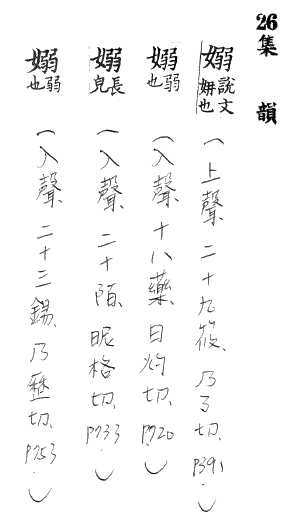 26集 韻
嫋說文㛪也(上聲、二十九篠、乃了切、P391.)
嫋弱也(入聲、十八藥、日灼切、P720.)
嫋長皃(入聲、二十陌、昵格切、P733.)
嫋弱也(入聲、二十三錫、乃歷切、P753.)